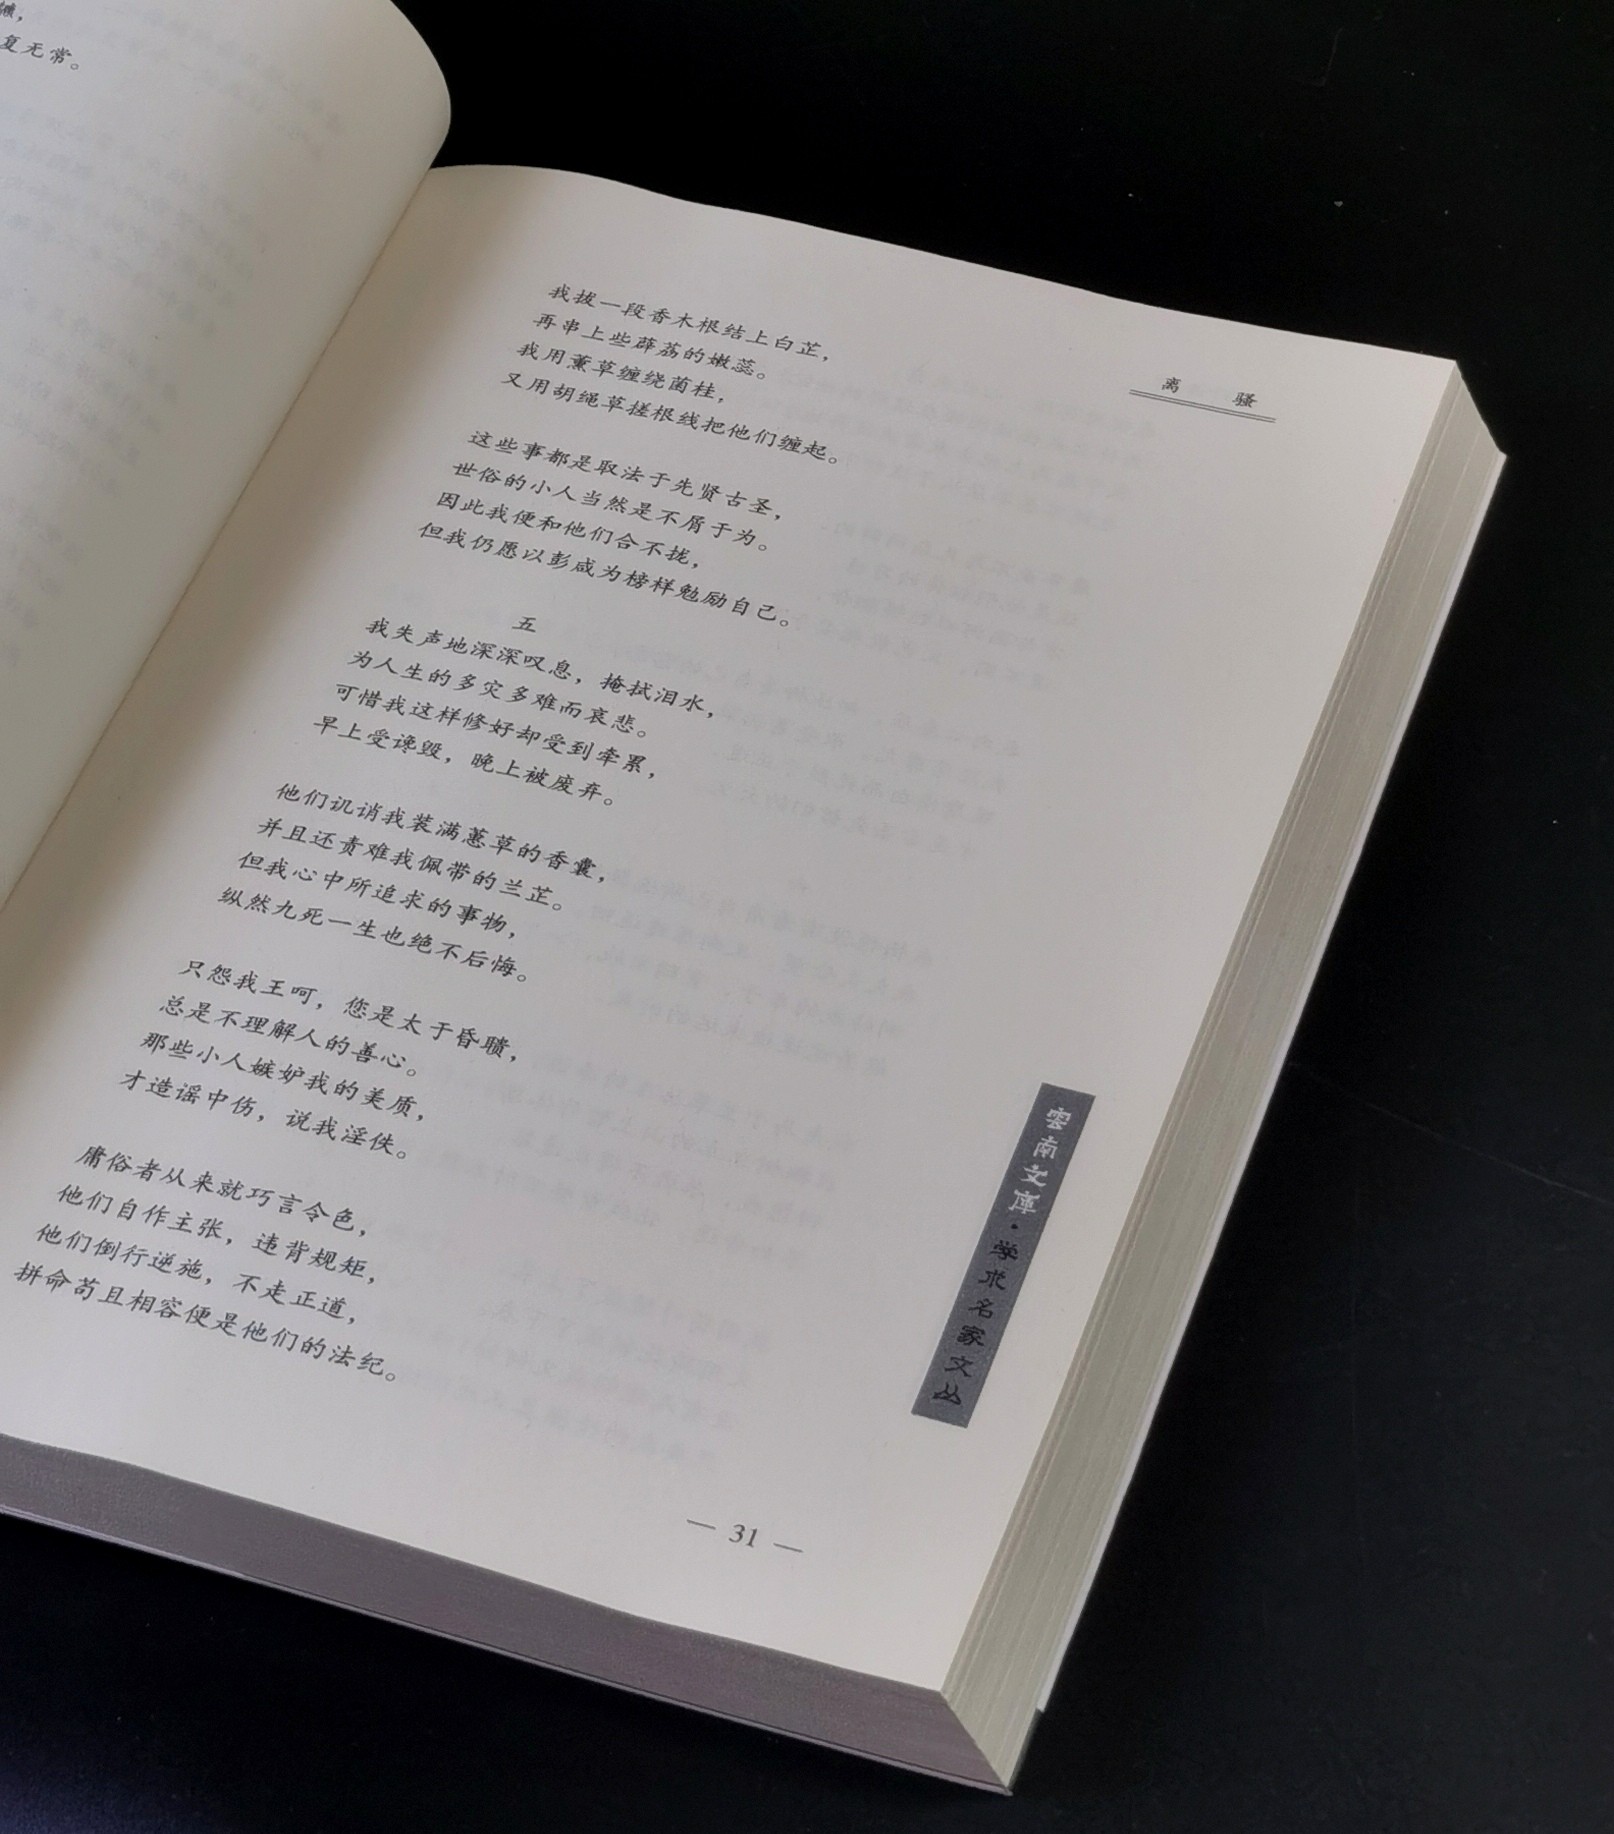 复无常。
离骚
我拔一段香木根结上白芷，
再串上些薜荔的嫩蕊。
我用薰草缠绕菌桂，
又用胡绳草搓根线把他们缠起。
这些事都是取法于先贤古圣，
世俗的小人当然是不屑于为。
因此我便和他们合不拢，
但我仍愿以彭咸为榜样勉励自己。
五
我失声地深深叹息，掩拭泪水，
为人生的多灾多难而哀悲。
可惜我这样修好却受到牵累，
早上受谗毁，晚上被废弃。
他们讥诮我装满蕙草的香囊，
并且还责难我佩带的兰芷。
但我心中所追求的事物，
纵然九死一生也绝不后悔。
只怨我王呵，您是太于昏聩，
总是不理解人的善心。
那些小人嫉妒我的美质，
才造谣中伤，说我淫佚。
庸俗者从来就巧言令色，
他们自作主张，违背规矩，
他们倒行逆施，不走正道，
拼命苟且相容便是他们的法纪。
雲南文庫·学术名家文丛
— 31 —